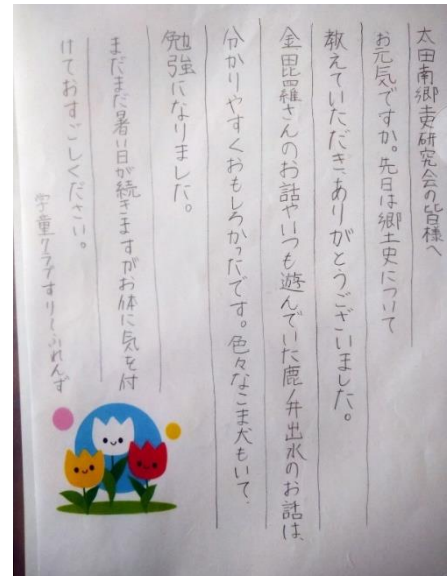 太田南郷史研究会の皆様へ
お元気ですか。先日は郷土史について
教えていただき、ありがとうございました。
金毘羅さんのお話やいつも遊んでいた鹿ノ井出水のお話は、
分かりやすくおもしろかったです。色々なこま犬もいて、
勉強になりました。
まだまだ暑い日が続きますがお体に気を付
けておすごしください。
学童クラブすりーふれんず